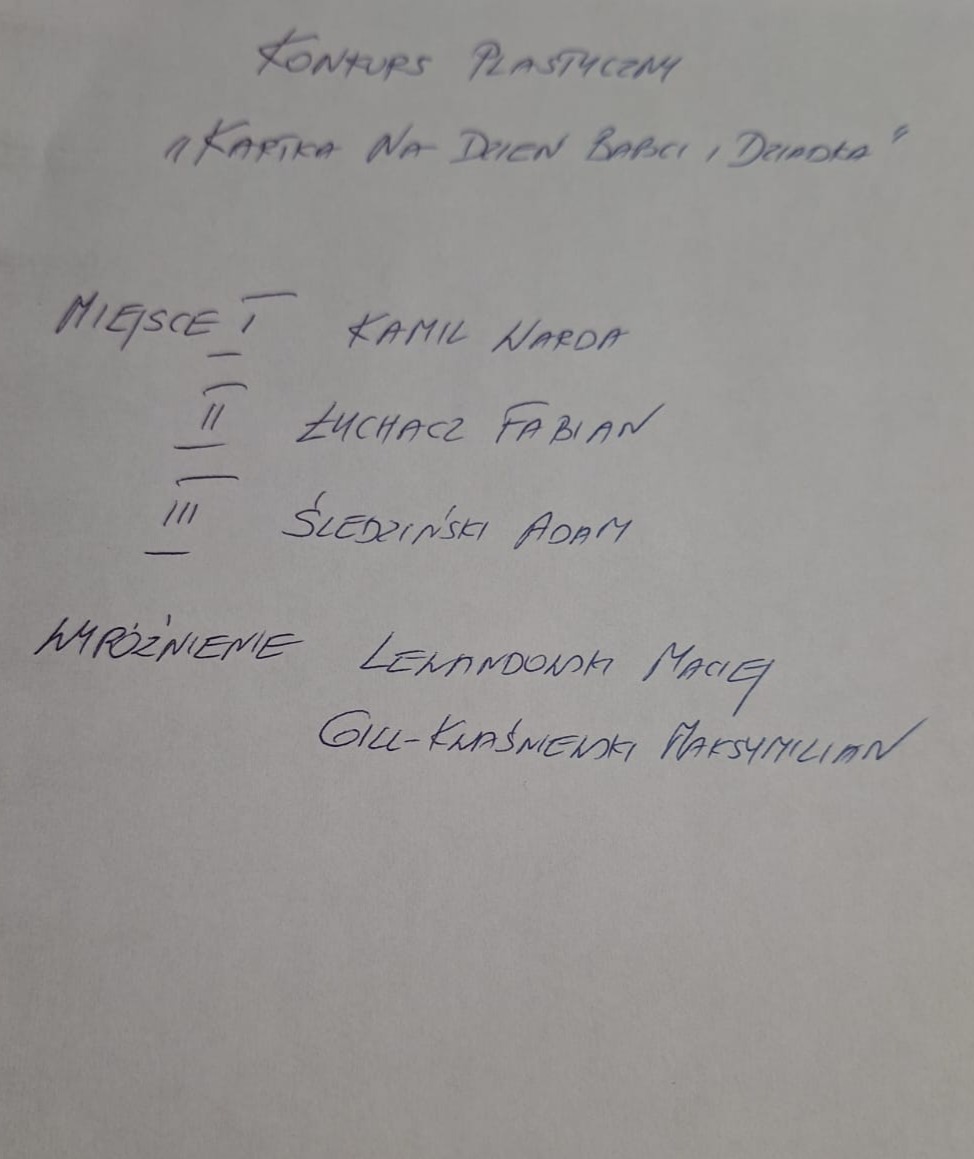 KONKURS PLASTYCZNY
„KARTKA NA DZIEN BABCI I DZIADKA"
MIEJSCE I KAMIL WARDA
II ŁUCHACZ FABIAN
III ŚLEDZIŃSKI ADAM
WYRÓŻNIENIE LEWANDOWSKI MACIEJ
GILL-KWAŚNIEWSKI MAKSYMILIAN